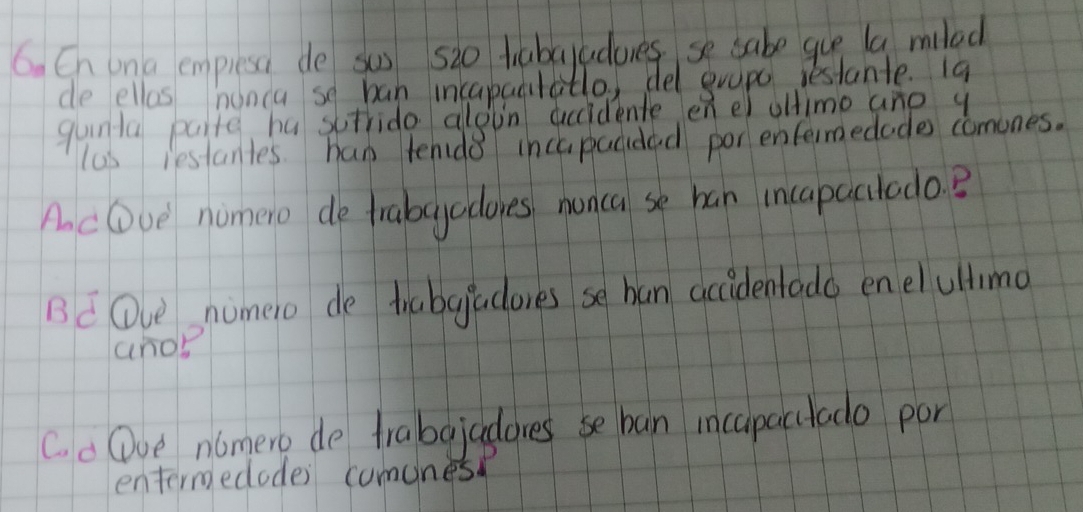 6. En una empresa de sus 520 trabajadores se sabe que la mitad
de ellos nunca se han incapacitado, del grupo restante. la
quinta parte ha sufrido algún accidente en el ultimo año y
los restantes han tenido incapacidad por enfermedades comunes.
A. ¿Qué número de trabajadores nunca se han incapacitado?
B ¿Qué número de trabajadores se han accidentado en el ultimo
año?
C. ¿Qué número de trabajadores se han incapacitado por
enfermedades comunes?